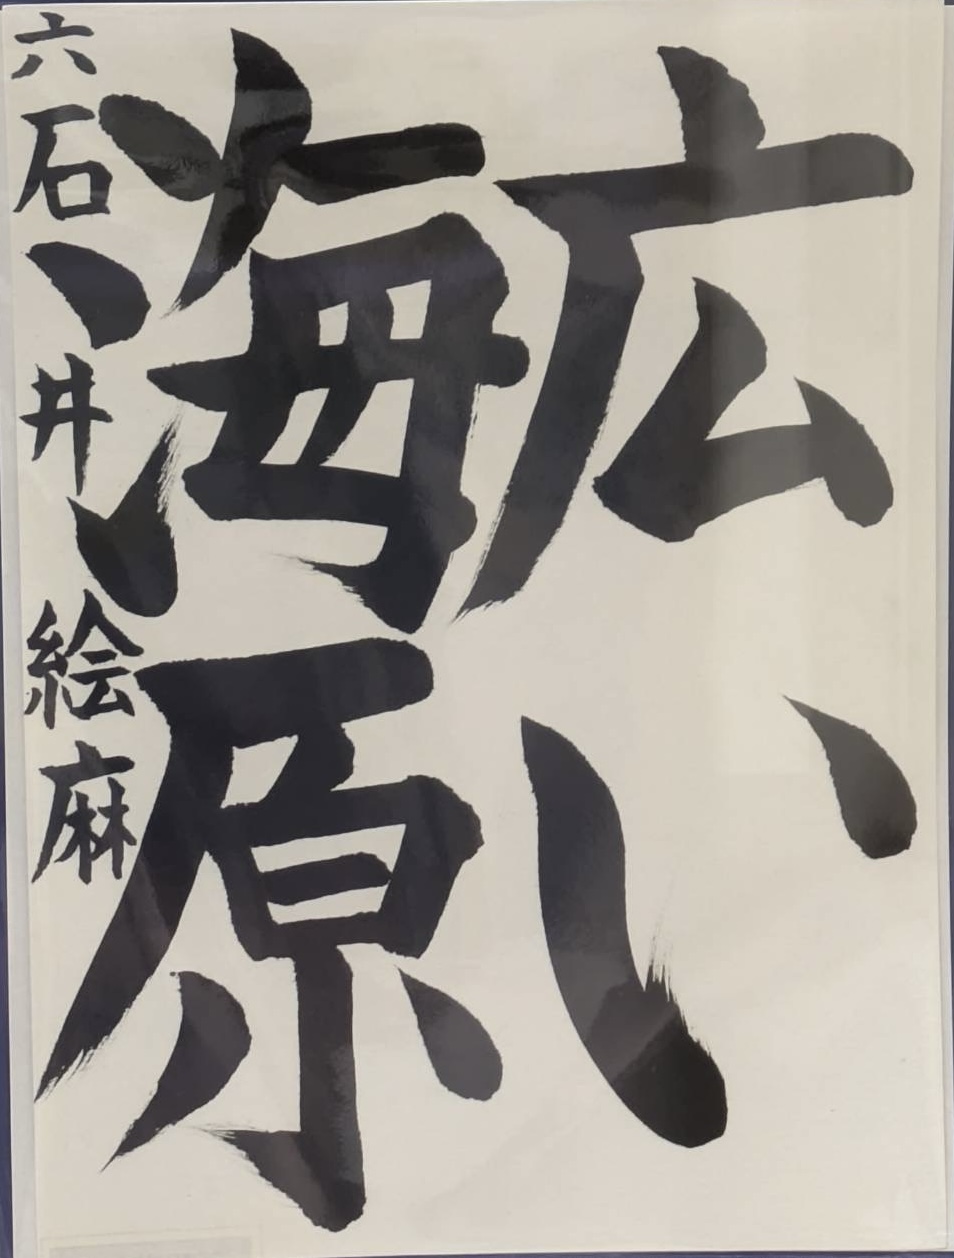 広い
海原
六 石井絵麻